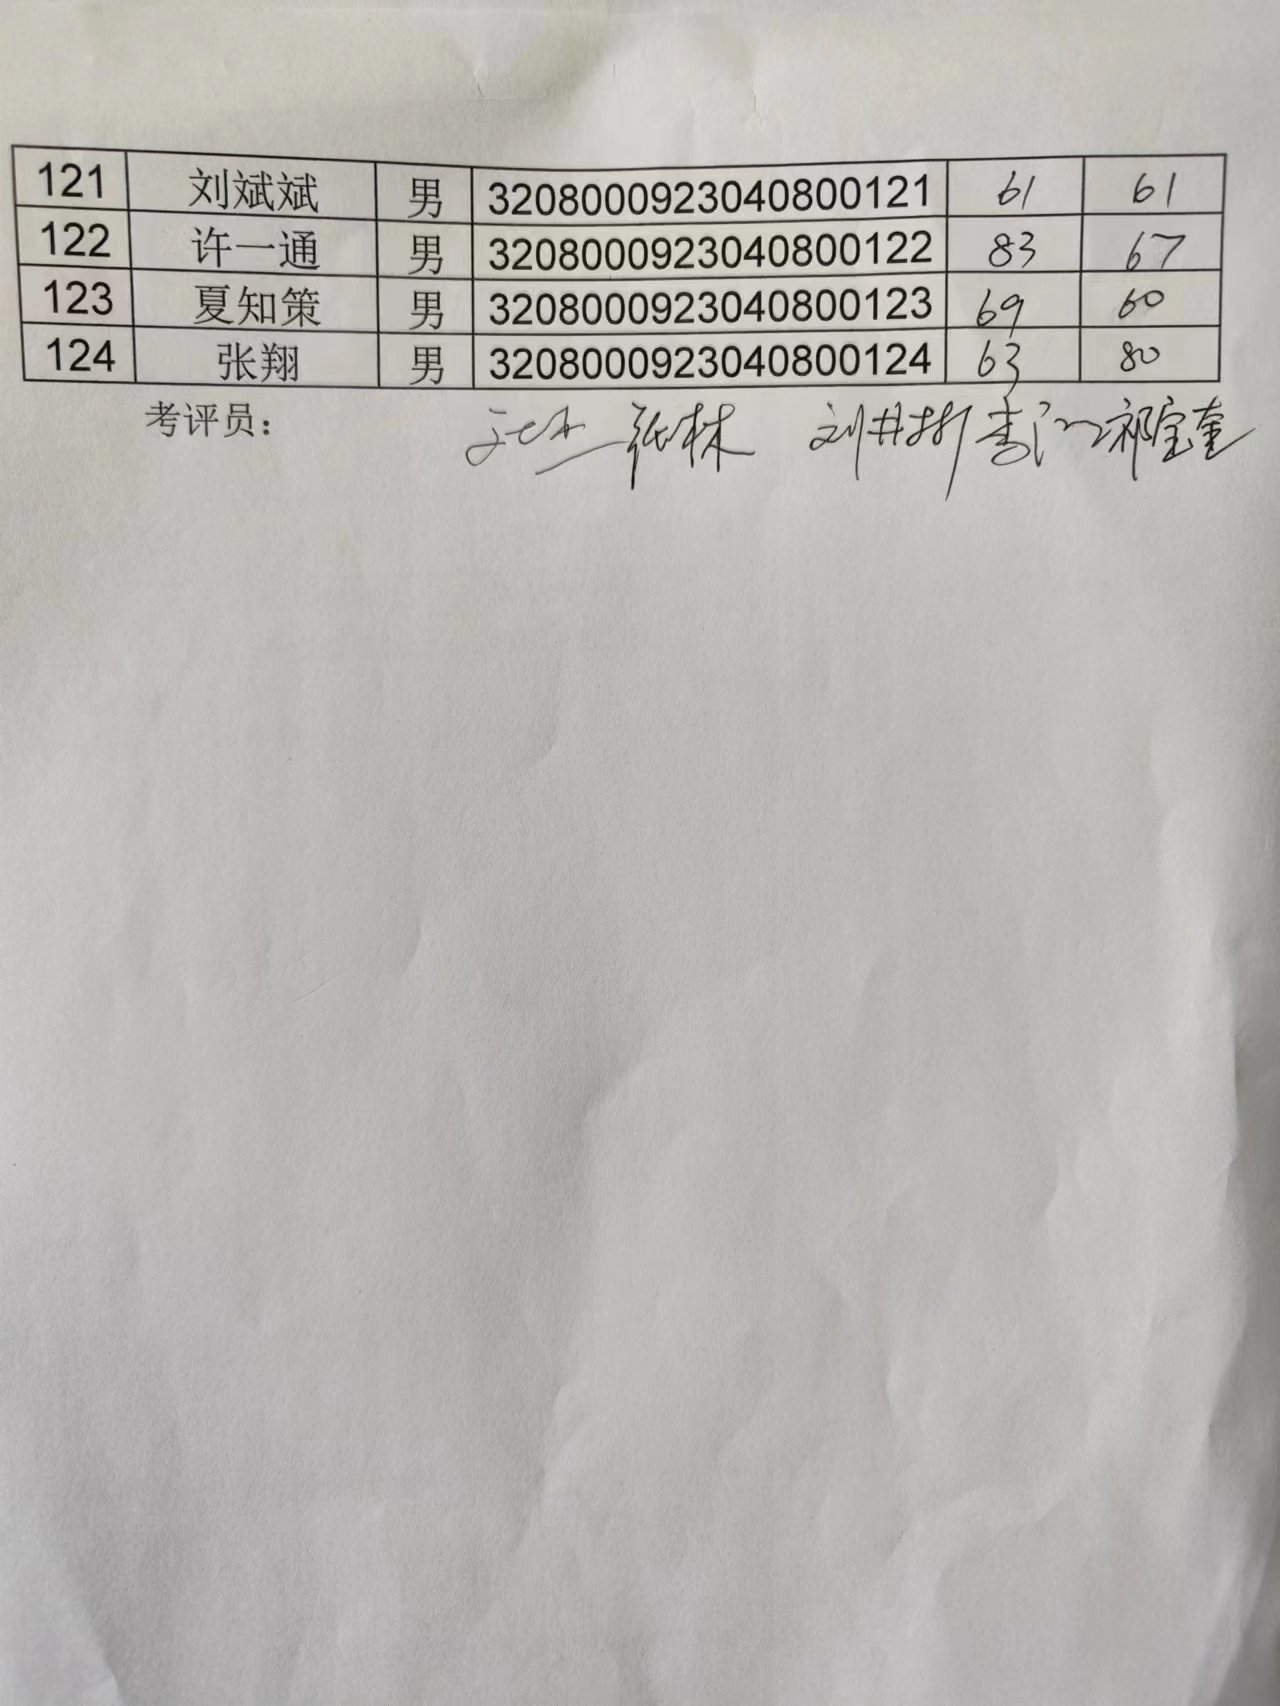 121 刘斌斌 男 3208000923040800121 61 61
122 许一通 男 3208000923040800122 83 67
123 夏知策 男 3208000923040800123 69 60
124 张翔 男 3208000923040800124 63 80
考评员： 张林 刘井彬 祁宝奎